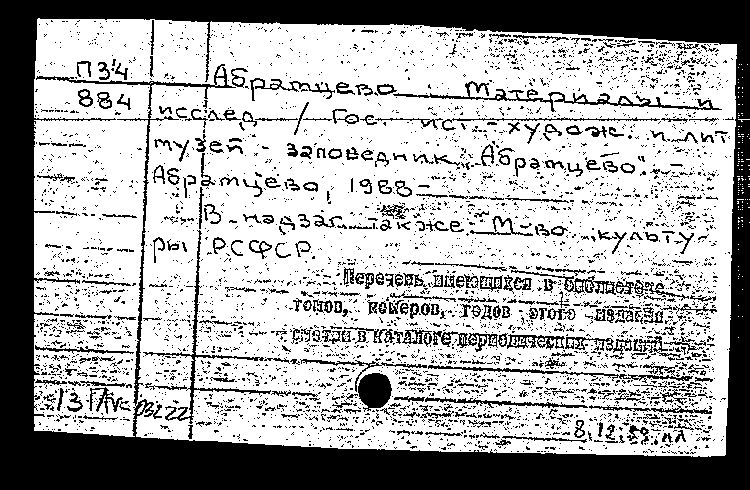 П34 Абрамцево : Материалы и
884 исслед. / Гос. ист.-худож. и лит.
музей - заповедник "Абрамцево". -
Абрамцево, 1988-
В надзаг. также: М-во культу-
ры РСФСР.
Перечень имеющихся в библиотеке
томов, номеров, годов этого издания
смотри в каталоге периодических изданий
13
8.12.88.